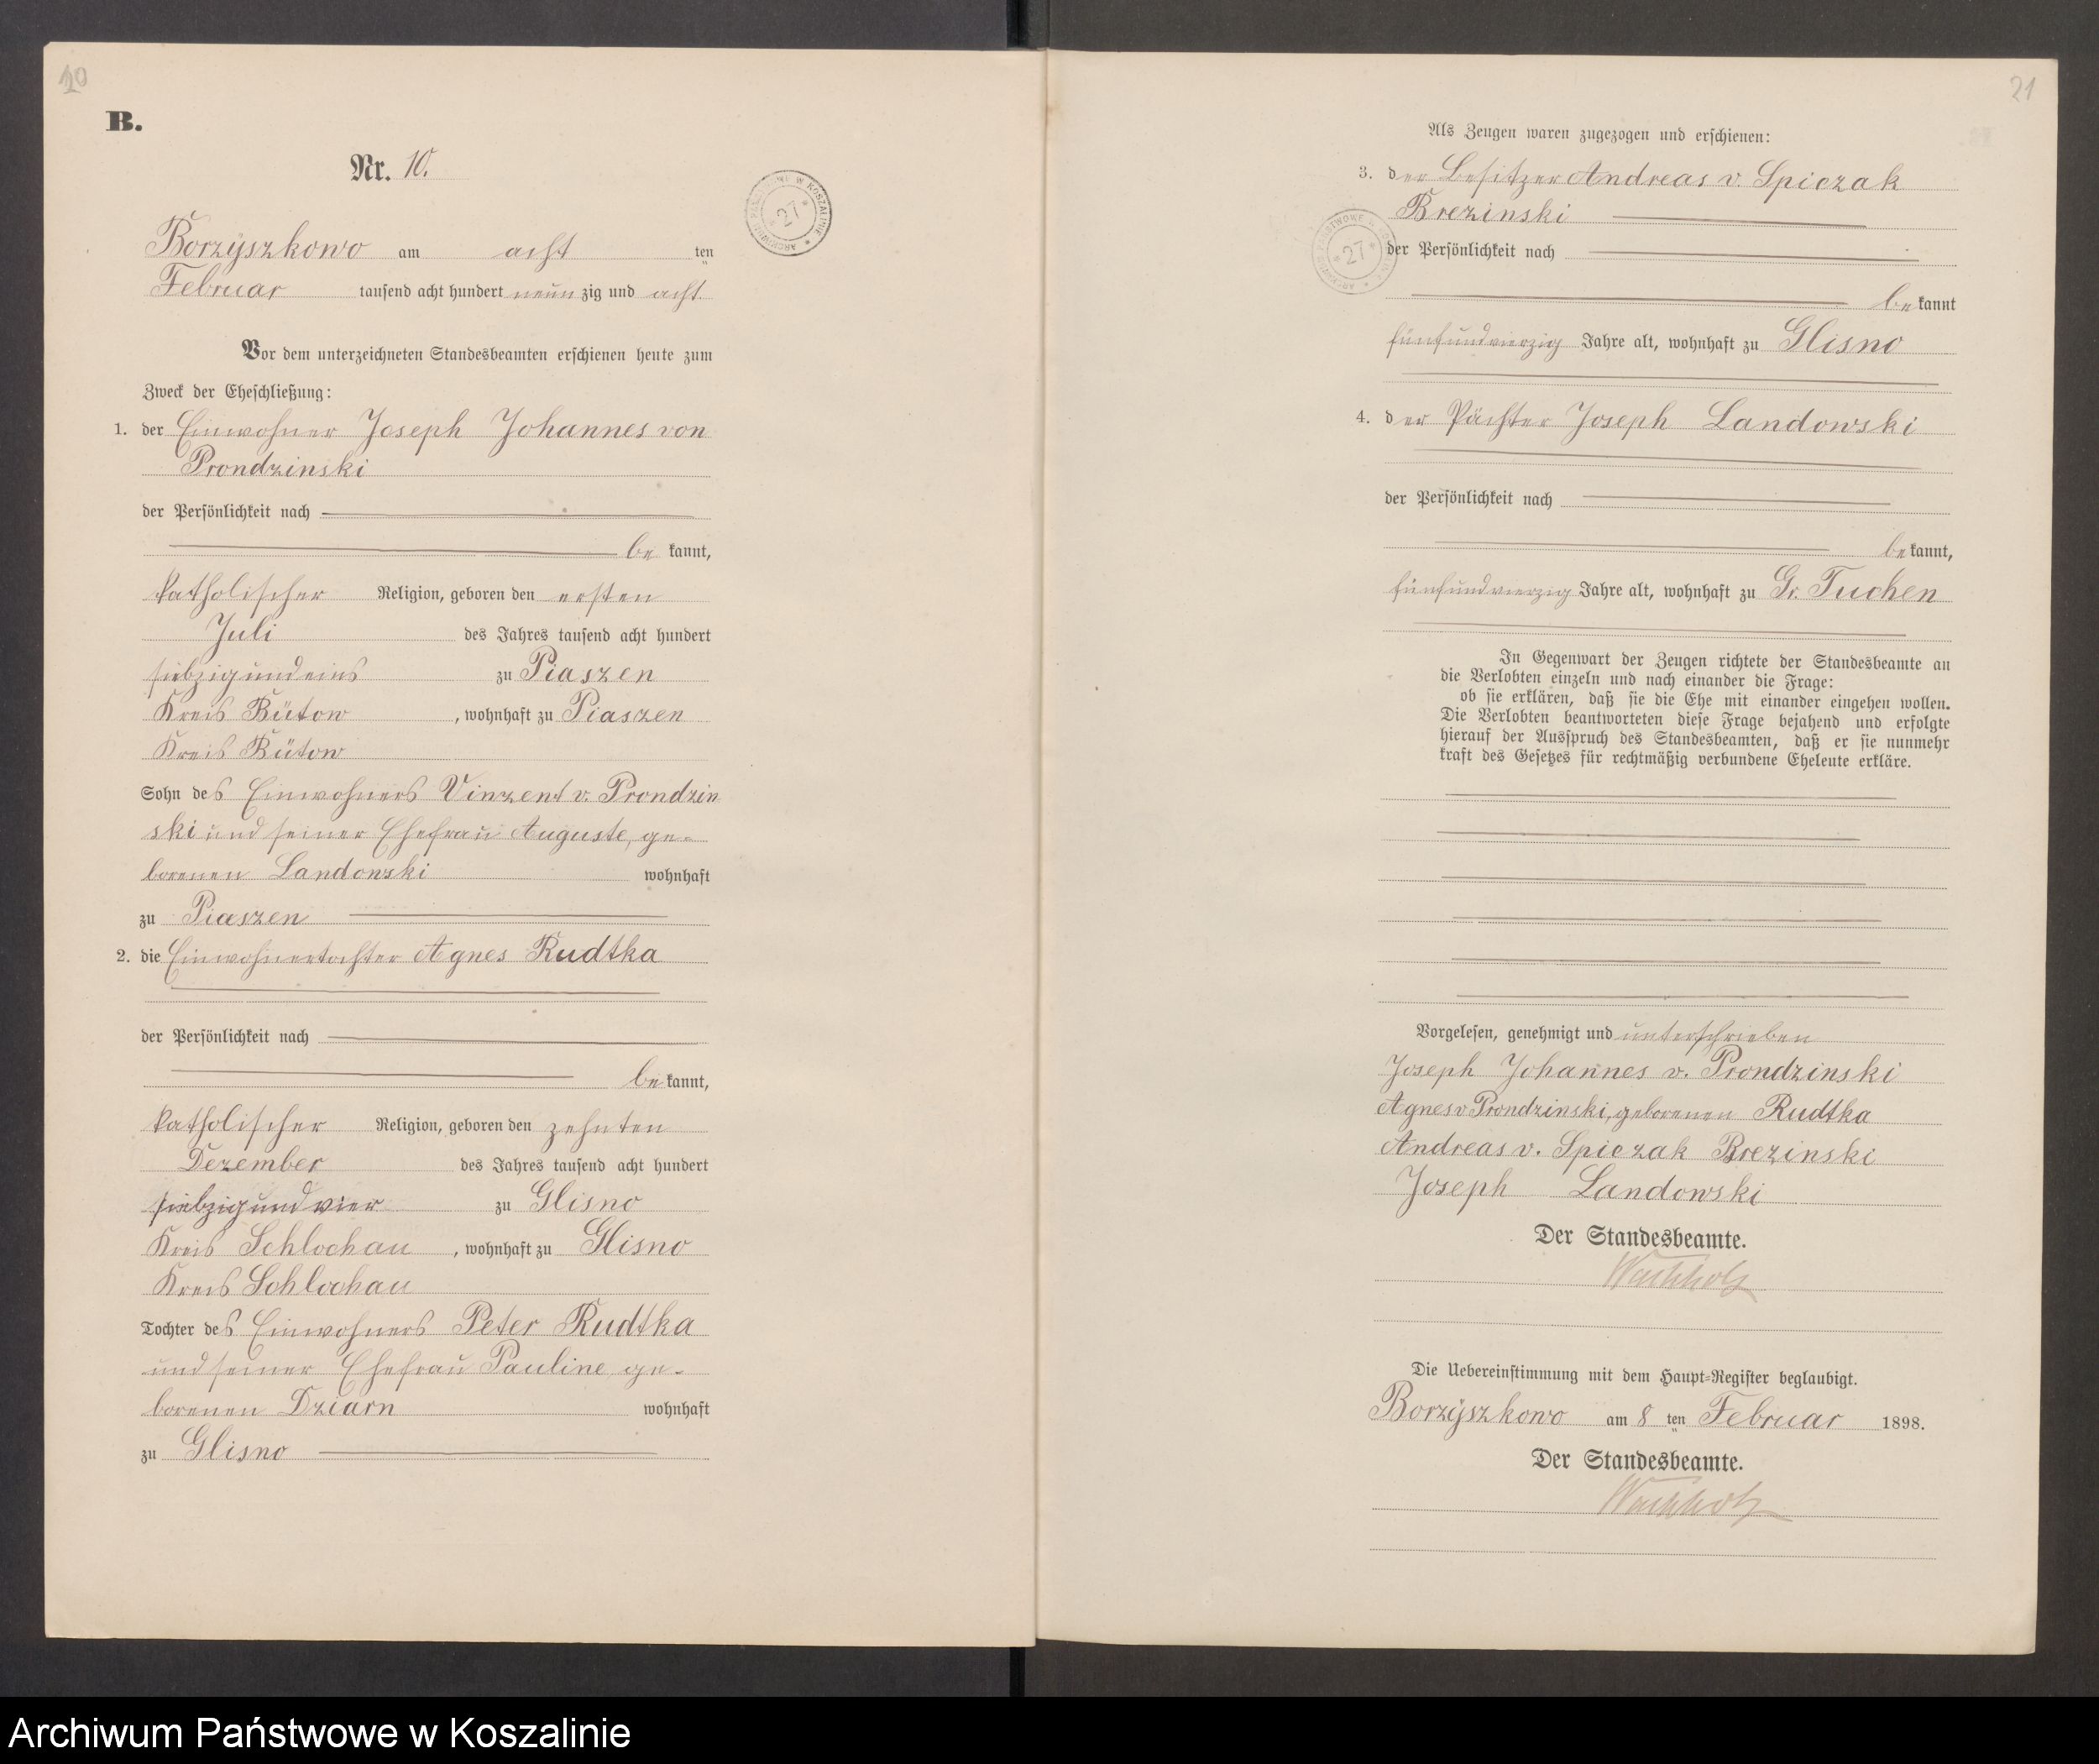 20
B.
Nr. 10.
Borzyszkowo am acht ten
Februar tausend acht hundert neunzig und acht
Vor dem unterzeichneten Standesbeamten erschienen heute zum
Zweck der Eheschließung:
1. der Einwohner Joseph Johannes von
Prondzinski
der Persönlichkeit nach
bekannt,
katholischer Religion, geboren den ersten
Juli des Jahres tausend acht hundert
siebzigundeins zu Piaszen
Kreis Bütow, wohnhaft zu Piaszen
Kreis Bütow
Sohn des Einwohners Vinzent v. Prondzin
ski und seiner Ehefrau Auguste, ge-
borenen Landowski wohnhaft
zu Piaszen
2. die Einwohnertochter Agnes Rudtka
der Persönlichkeit nach
bekannt,
katholischer Religion, geboren den zehnten
Dezember des Jahres tausend acht hundert
siebzigundvier zu Glisno
Kreis Schlochau, wohnhaft zu Glisno
Kreis Schlochau
Tochter des Einwohners Peter Rudtka
und seiner Ehefrau Pauline, ge-
borenen Dziarn wohnhaft
zu Glisno
ARCHIWUM PAŃSTWOWE W KOSZALINIE * 27 *
21
Als Zeugen waren zugezogen und erschienen:
3. der Besitzer Andreas v. Spiczak
Brezinski
der Persönlichkeit nach
bekannt
fünfundvierzig Jahre alt, wohnhaft zu Glisno
4. der Pächter Joseph Landowski
der Persönlichkeit nach
bekannt,
fünfundvierzig Jahre alt, wohnhaft zu Gr. Tuchen
In Gegenwart der Zeugen richtete der Standesbeamte an
die Verlobten einzeln und nach einander die Frage:
ob sie erklären, daß sie die Ehe mit einander eingehen wollen.
Die Verlobten beantworteten diese Frage bejahend und erfolgte
hierauf der Ausspruch des Standesbeamten, daß er sie nunmehr
kraft des Gesetzes für rechtmäßig verbundene Eheleute erkläre.
Vorgelesen, genehmigt und unterschrieben
Joseph Johannes v. Prondzinski
Agnes v Prondzinski, geborenen Rudtka
Andreas v. Spiczak Brezinski
Joseph Landowski
Der Standesbeamte.
Wachholz
Die Uebereinstimmung mit dem Haupt-Register beglaubigt.
Borzyszkowo am 8 ten Februar 1898.
Der Standesbeamte.
Wachholz
ARCHIWUM PAŃSTWOWE W KOSZALINIE * 27 *
Archiwum Państwowe w Koszalinie